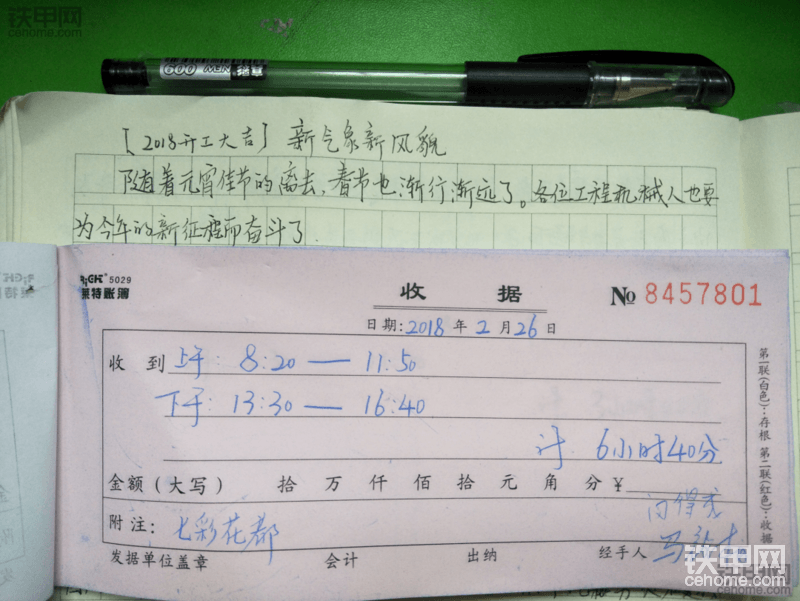 铁甲网
cehome.com
600 MEN 指章
【2018开工大吉】 新气象新风貌
随着元宵佳节的离去，春节也渐行渐远了。各位工程机械人也要
为今年的新征程而奋斗了
5029
莱特账簿
收 据
No 8457801
日期：2018 年 2 月 26 日
收 到 上午：8:20 — 11:50
下午：13:30 — 16:40
计 6小时40分
金额（大写） 拾 万 仟 佰 拾 元 角 分 ¥
附注：七彩花都
发据单位盖章 会计 出纳 经手人
第一联（白色）：存根 第二联（红色）：收据
铁甲网
cehome.com